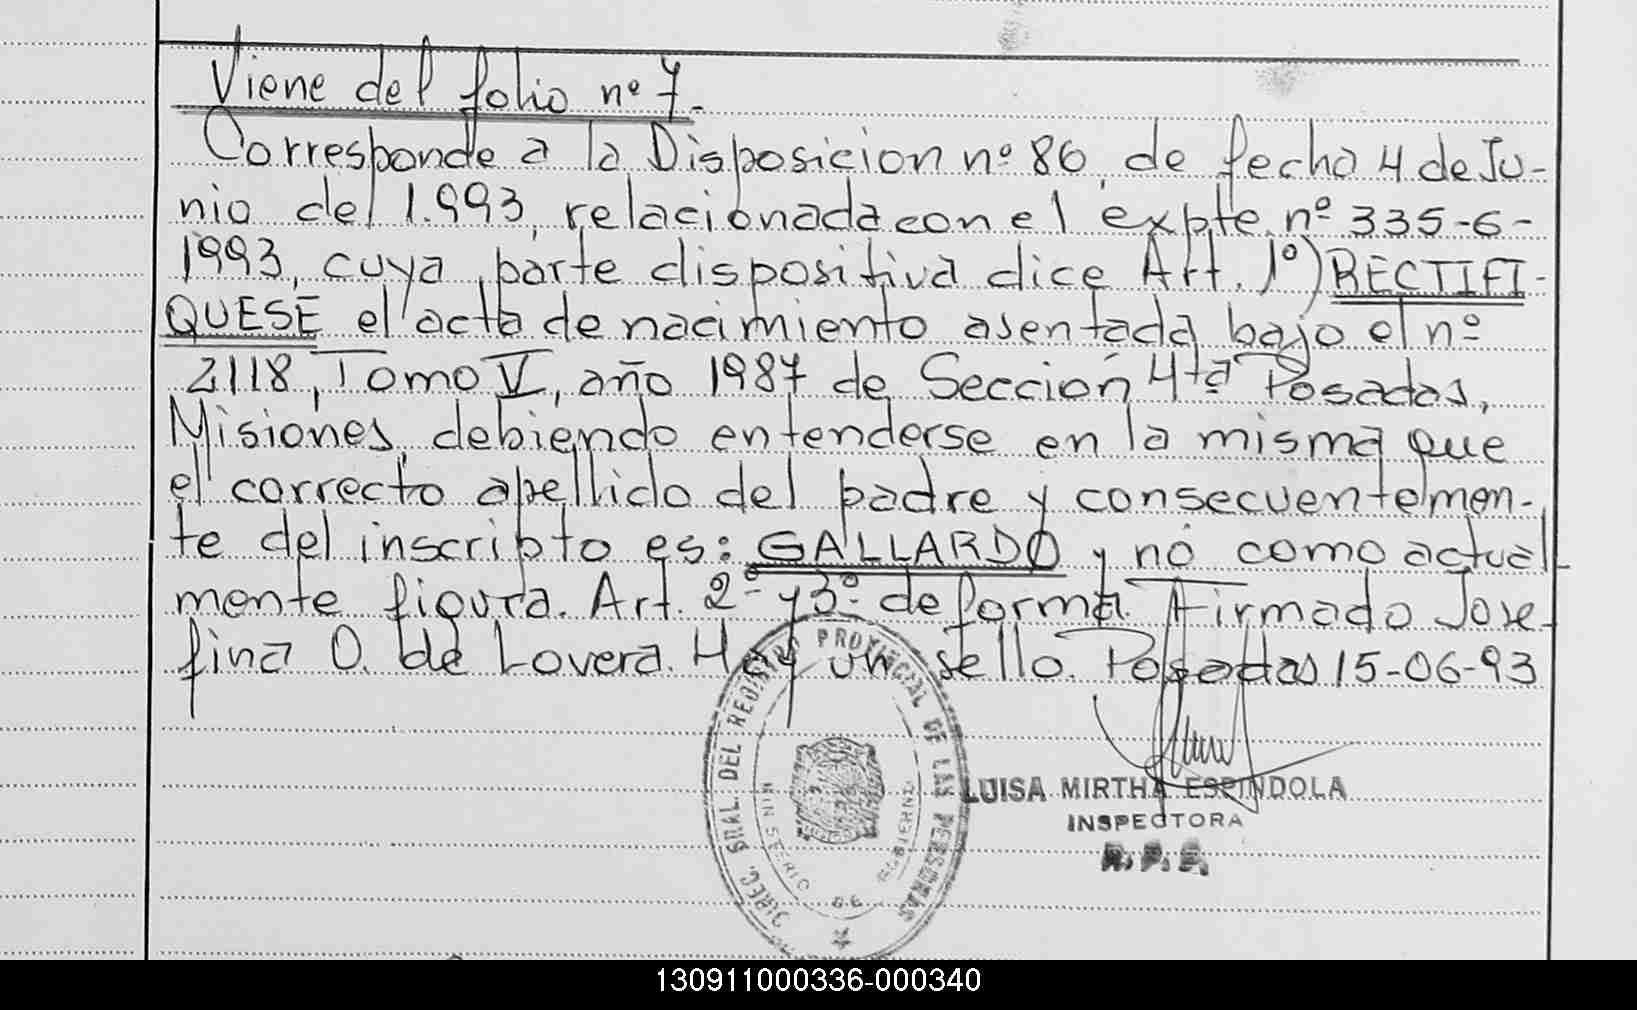 Viene del folio nº 7.
Corresponde a la Disposicion nº 86, de fecha 4 de Ju-
nio del 1.993, relacionada con el expte. nº 335-6-
1993, cuya parte dispositiva dice Art. 1º) RECTIFI-
QUESE el acta de nacimiento asentada bajo el nº
2118, Tomo V, año 1987 de Sección 4ta Posadas,
Misiones, debiendo entenderse en la misma que
el correcto apellido del padre y consecuentemen-
te del inscripto es: GALLARDO y no como actual-
mente figura. Art. 2º y 3º de forma. Firmado Jose-
fina O. de Lovera. Hay un sello. Posadas 15-06-93
DIREC. GRAL. DEL REGISTRO PROVINCIAL DE LAS PERSONAS
MINISTERIO DE GOBIERNO
LUISA MIRTHA ESPINDOLA
INSPECTORA
R. P. P.
130911000336-000340